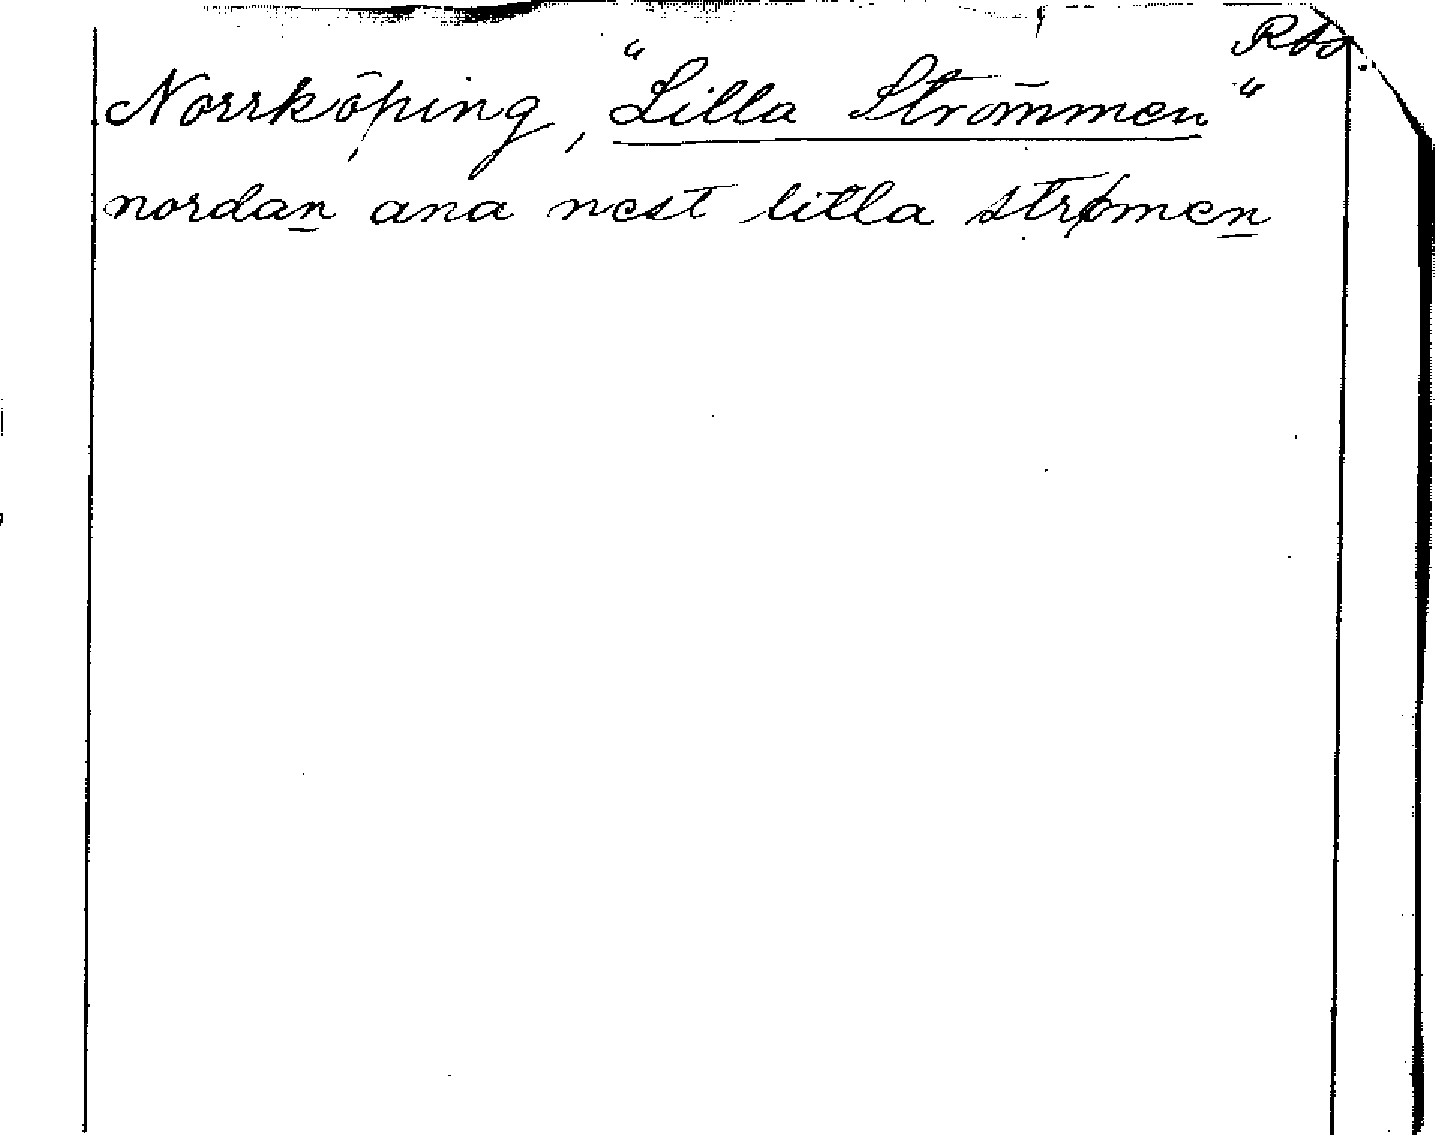 Norrköping, "Lilla Strömmen"
nordan ana nest litla strømen